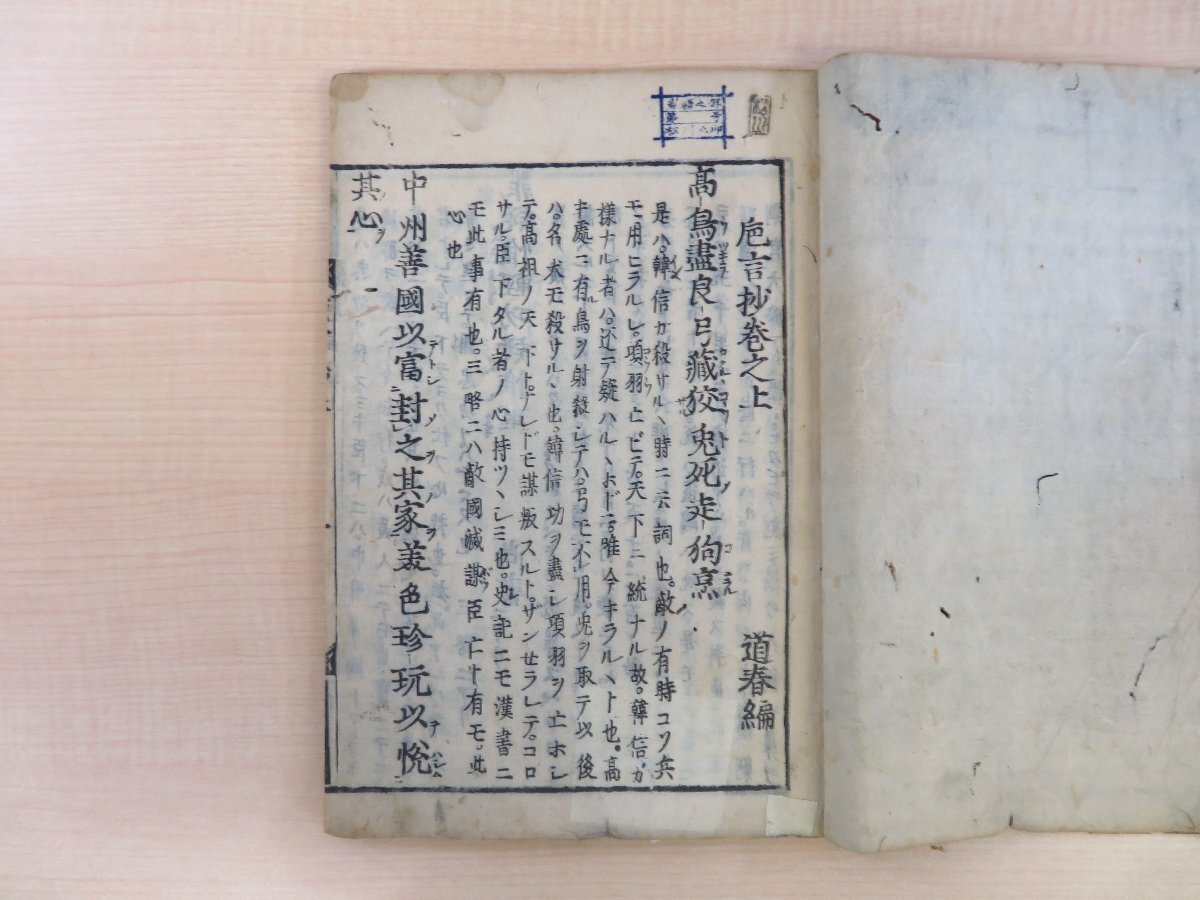 巵言抄卷之上 道春編
高鳥盡良弓藏狡兎死走狗烹
是ハ韓信カ殺サルヽ時ニ云詞也。敵ノ有時コソ兵
モ用ヒラルレ。項羽亡ビテ。天下一統ナル故。韓信カ
様ナル者ハ。还テ疑ハルヽホドニ。唯今キラルヽト也。高
キ處ニ有鳥ヲ射殺シテハ。弓モ不用。兎ヲ取テ以後
ハ。名犬モ殺サルヽ也。韓信功ヲ盡シ項羽ヲ亡ホシ
テ。高祖ノ天下ト。ナレドモ謀叛スルト。ザンセラレテ。コロ
サル。臣下タル者ノ心持ツヽシミ也。史記ニモ漢書ニ
モ此事有也。三略ニハ敵國滅謀臣亡ト有モ。此
心也
中州善國以富封之其家美色珍玩以悦
其心